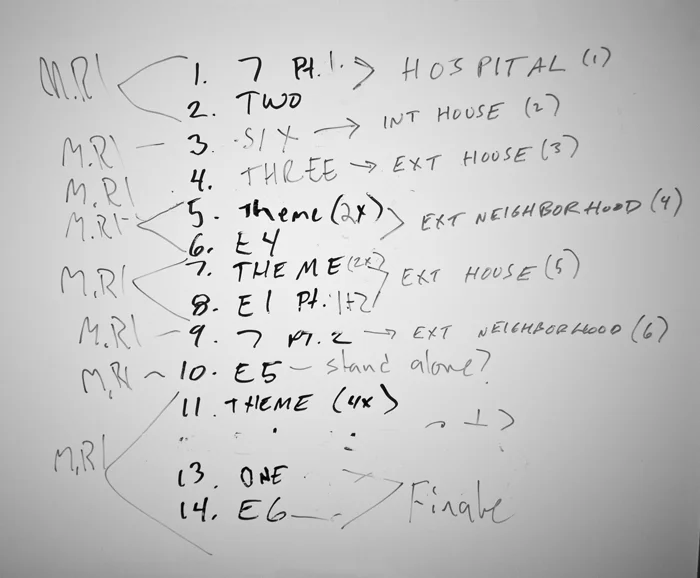 M.RI 1. 7 Pt.1. > HOSPITAL (1)
2. TWO
M.RI — 3. SIX → INT HOUSE (2)
M.RI 4. THREE → EXT HOUSE (3)
M.RI 5. Theme (2x) > EXT NEIGHBORHOOD (4)
6. E4
M.RI 7. THEME (2x) EXT HOUSE (5)
8. E1 Pt. 1+2
M.RI — 9. 7 PT.2 → EXT NEIGHBORHOOD (6)
M.RI ~ 10. E5 — stand alone?
11. THEME (4x)
M.RI 13. ONE
14. E6 — Finale